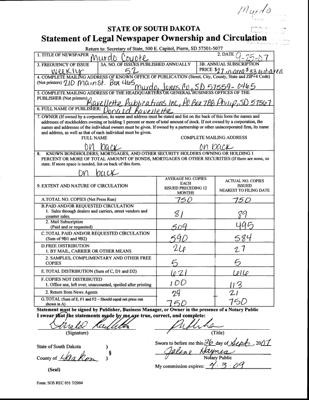 Murdo
STATE OF SOUTH DAKOTA
Statement of Legal Newspaper Ownership and Circulation
Return to: Secretary of State, 500 E. Capitol, Pierre, SD 57501-5077
1. TITLE OF NEWSPAPER Murdo Coyote 2. DATE 9-25-07
3. FREQUENCY OF ISSUE weekly 3A. NO. OF ISSUES PUBLISHED ANNUALLY 52 3B. ANNUAL SUBSCRIPTION PRICE
4. COMPLETE MAILING ADDRESS OF KNOWN OFFICE OF PUBLICATION (Street, City, County, State and ZIP+4 Code)
(Not printers) 210 Main St. Box 465
Murdo, Jones Co, SD 57559-0465
5. COMPLETE MAILING ADDRESS OF THE HEADQUARTERS OR GENERAL BUSINESS OFFICES OF THE
PUBLISHER (Not printers) Ravellette Publications Inc, PO Box 788 Philip, SD 57567
6. FULL NAME OF PUBLISHER: Donald Ravellette
7. OWNER (If owned by a corporation, its name and address must be stated and list on the back of this form the names and
addresses of stockholders owning or holding 1 percent or more of total amount of stock. If not owned by a corporation, the
names and addresses of the individual owners must be given. If owned by a partnership or other unincorporated firm, its name
and address, as well as that of each individual must be given.
FULL NAME COMPLETE MAILING ADDRESS
on back on back
8. KNOWN BONDHOLDERS, MORTGAGEES, AND OTHER SECURITY HOLDERS OWNING OR HOLDING 1
PERCENT OR MORE OF TOTAL AMOUNT OF BONDS, MORTGAGES OR OTHER SECURITIES (If there are none, so
state. If more space is needed, list on back of this form.
on back
9. EXTENT AND NATURE OF CIRCULATION AVERAGE NO. COPIES EACH ISSUED PRECEDING 12 MONTHS ACTUAL NO. COPIES ISSUED NEAREST TO FILING DATE
A. TOTAL NO. COPIES (Net Press Run) 750 750
B. PAID AND/OR REQUESTED CIRCULATION
1. Sales through dealers and carriers, street vendors and
counter sales. 81 89
2. Mail Subscription
(Paid and or requested) 509 495
C. TOTAL PAID AND/OR REQUESTED CIRCULATION
(Sum of 9B1 and 9B2) 590 584
D. FREE DISTRIBUTION
1. BY MAIL, CARRIER OR OTHER MEANS 26 27
2. SAMPLES, COMPLIMENTARY AND OTHER FREE
COPIES 5 5
E. TOTAL DISTRIBUTION (Sum of C, D1 and D2) 621 616
F. COPIES NOT DISTRIBUTED
1. Office use, left over, unaccounted, spoiled after printing 100 113
2. Return from News Agents 29 21
G. TOTAL (Sum of E, F1 and F2 - Should equal net press run
shown in A) 750 750
Statement must be signed by Publisher, Business Manager, or Owner in the presence of a Notary Public
I swear that the statements made by me are true, correct, and complete:
Publisher
(Signature) (Title)
State of South Dakota
Sworn to before me this day of Sept. 2007
County of
Notary Public
(Seal) My commission expires:
Form: SOS REC 051 7/2004